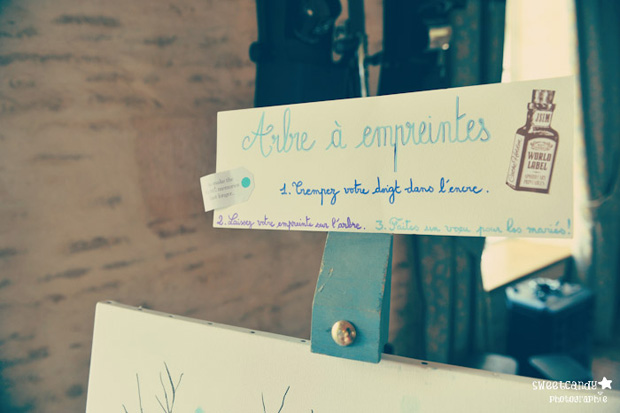 Arbre à empreintes
JSIM
WORLD
LABEL
1. Trempez votre doigt dans l'encre.
2. Laissez votre empreinte sur l'arbre. 3. Faites un vœu pour les mariés!
sweetcandy
photographie